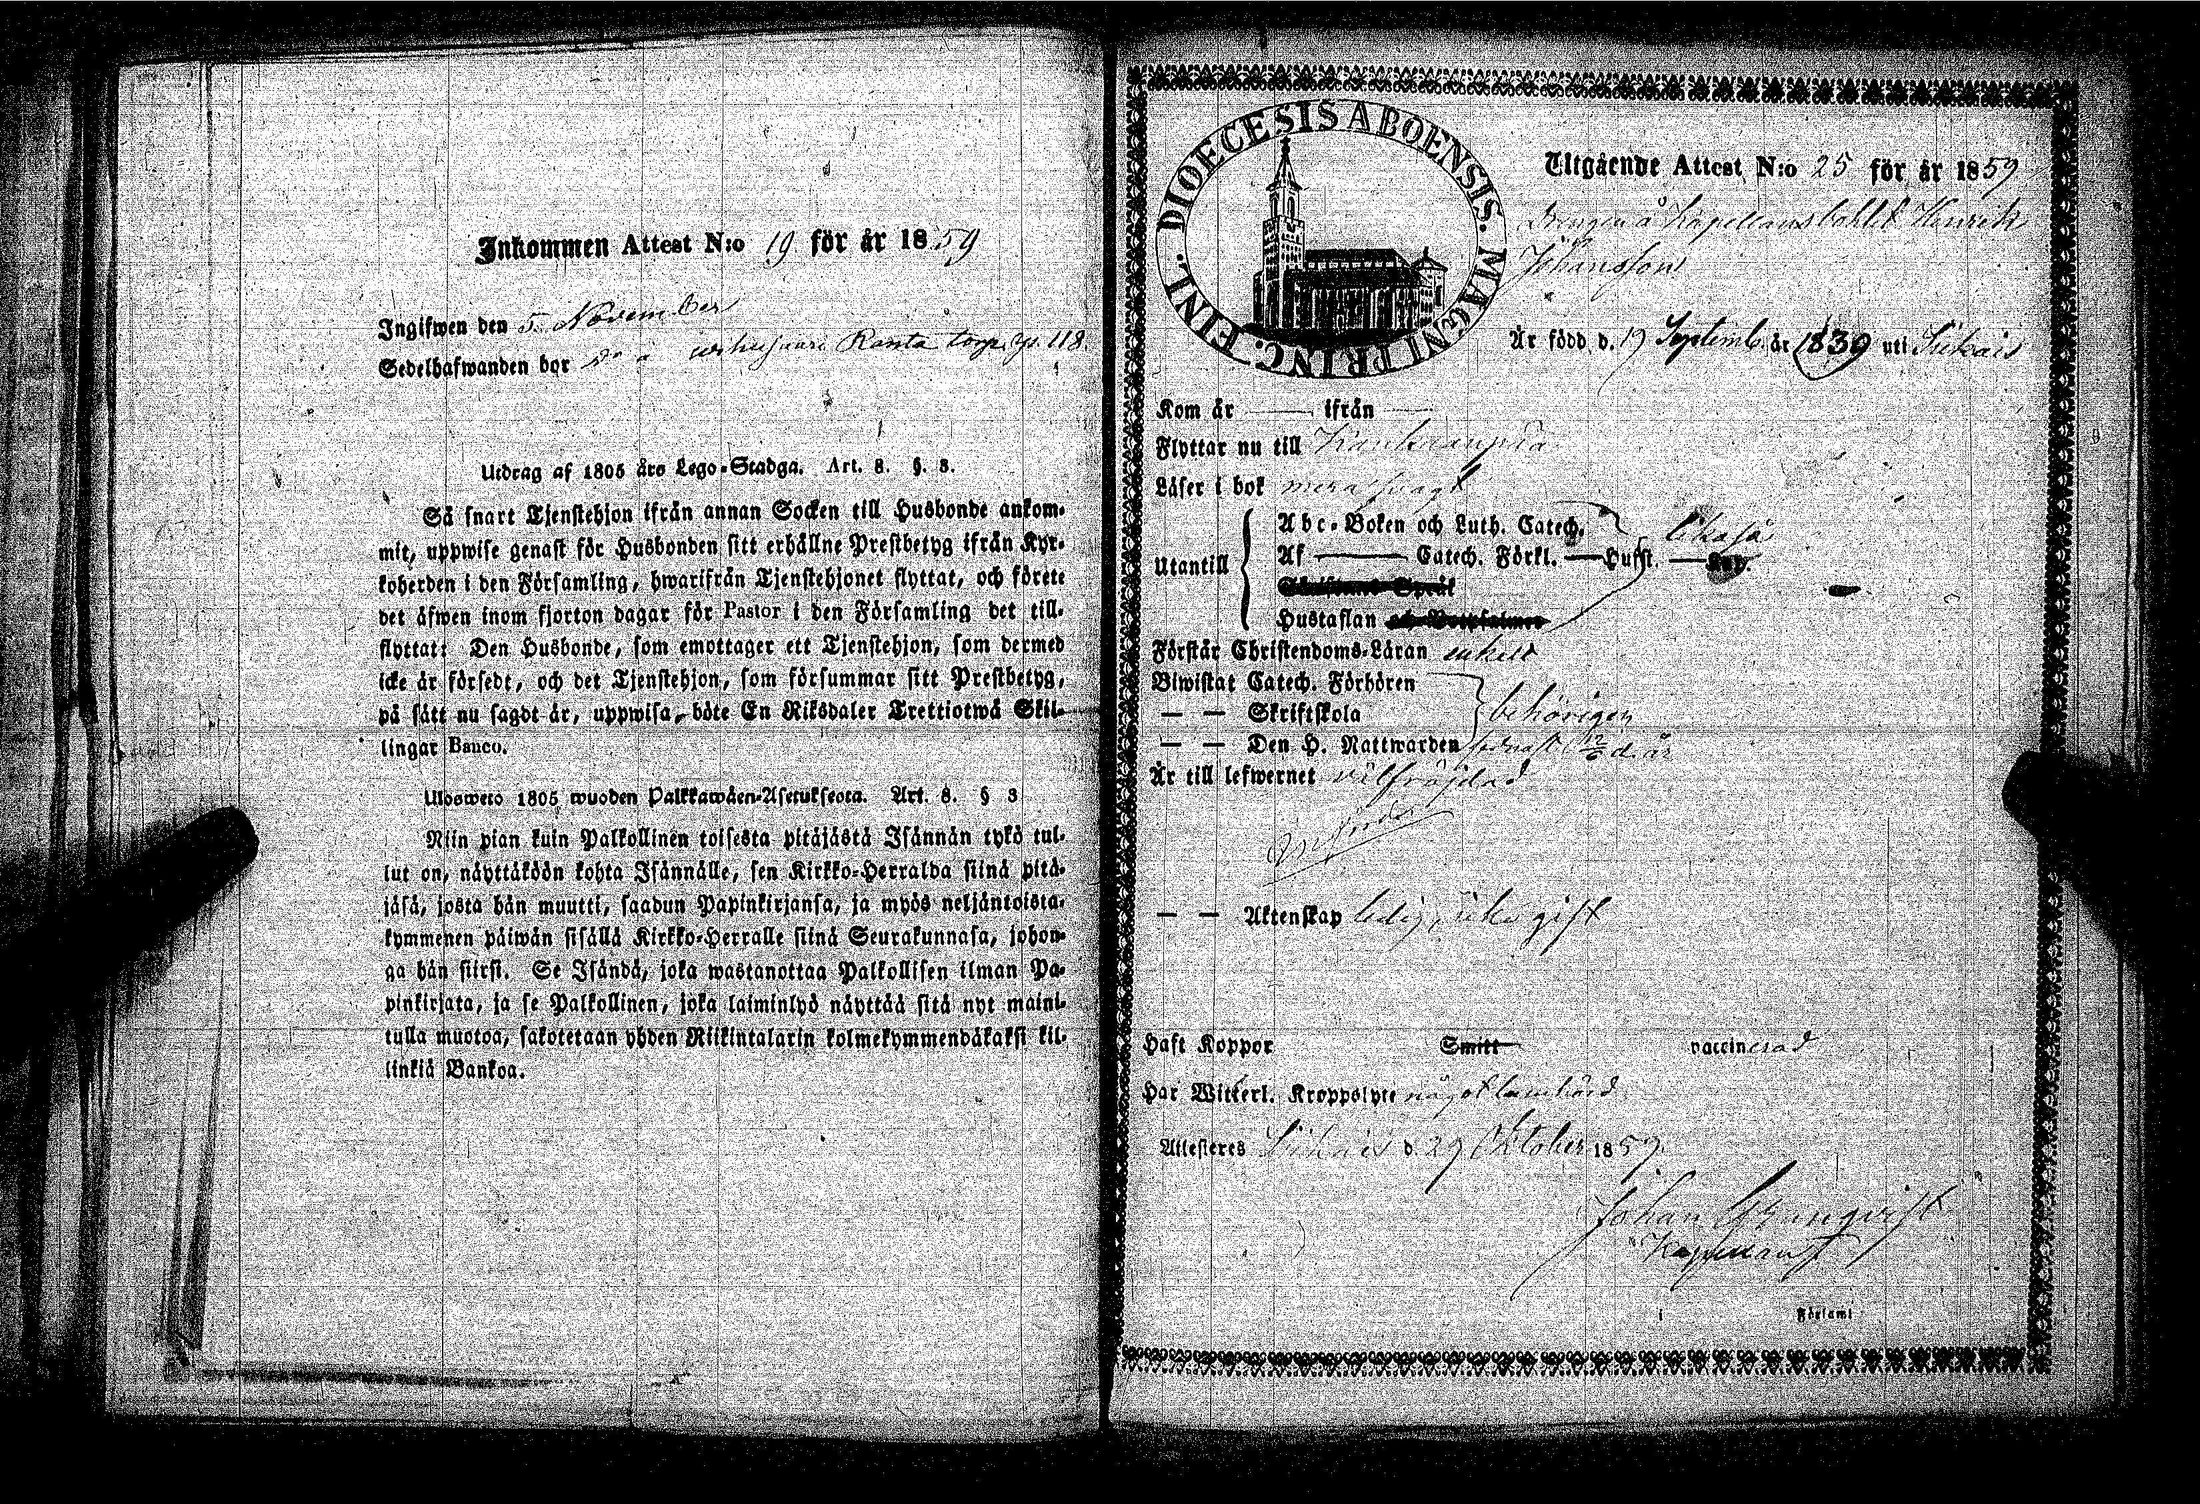 Inkommen Attest N:o 19 för år 1859
Ingifwen den 5 November
Sedelhafwanden bor Ranta torp pg. 118.
Utdrag af 1805 års Lego-Stadga. Art. 8. §. 3.
Så snart Tjenstehjon ifrån annan Socken till Husbonde ankom-
mit, uppwise genast för Husbonden sitt erhållne Prestbetyg ifrån Kyr-
koherden i den Församling, hwarifrån Tjenstehjonet flyttat, och förete
det åfwen inom fjorton dagar för Pastor i den Församling det till-
flyttat: Den Husbonde, som emottager ett Tjenstehjon, som dermed
icke är försedt, och det Tjenstehjon, som försummar sitt Prestbetyg,
på sätt nu sagdt är, uppwisa, böte En Riksdaler Trettiotwå Skil-
lingar Banco.
Ulosweto 1805 wuoden Palkkawäen-Asetuksesta. Art. 8. § 3
Niin pian kuin Palkollinen toisesta pitäjästä Isännän tykö tul-
lut on, näyttäköön kohta Isännälle, sen Kirkko-Herralda siinä pitä-
jäsä, josta hän muutti, saadun Papinkirjansa, ja myös neljäntoista-
kymmenen päiwän sisällä Kirkko-Herralle siinä Seurakunnasa, johon-
ga hän siirsi. Se Isändä, joka wastanottaa Palkollisen ilman Pa-
pinkirjata, ja se Palkollinen, joka laiminlyö näyttää sitä nyt maini-
tulla muotoa, sakotetaan yhden Riikintalarin kolmekymmendäkaksi kil-
linkiä Bankoa.
DIOECESIS ABOENSIS. MAGNI PRINC. FINL.
Utgående Attest N:o 25 för år 1859
Drengen å Kapellansbohlet Henrik
Johansson
Är född d. 19 Septemb. år 1839 uti Siikais
Kom år — ifrån —
Flyttar nu till Kankaanpää
Läser i bok mera svagt
Abc-Boken och Luth. Catech. likaså
Utantill Af — Catech. Förkl. — Husst. —
Hustaflan
Förstår Christendoms-Läran enkelt
Biwistat Catech. Förhören
— — Skriftskola behörigen
— — Den H. Nattwarden senast d. år
Är till lefwernet välfräjdad
— — Äktenskap ledig, icke gift
Haft Koppor Smitt vaccinerad
Har Witterl. Kroppslyte något lomhörd
Attesteres Siikais d. 29 Oktober 1859.
Johan
Kapellan
i Församl